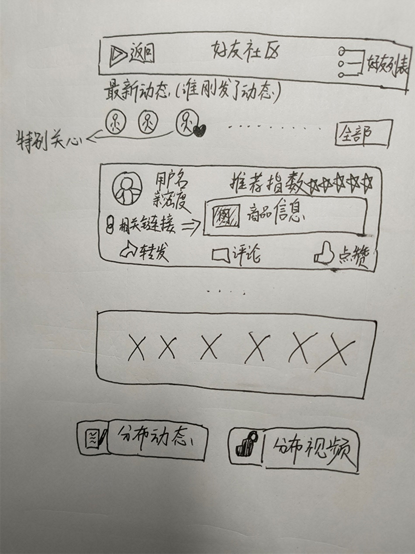 返回 好友社区 好友列表
最新动态(谁刚发了动态)
特别关心 全部
用户名 推荐指数☆☆☆☆☆
亲密度
相关链接⇒ 商品信息
转发 评论 点赞
....
X X X X X X
分布动态 分布视频